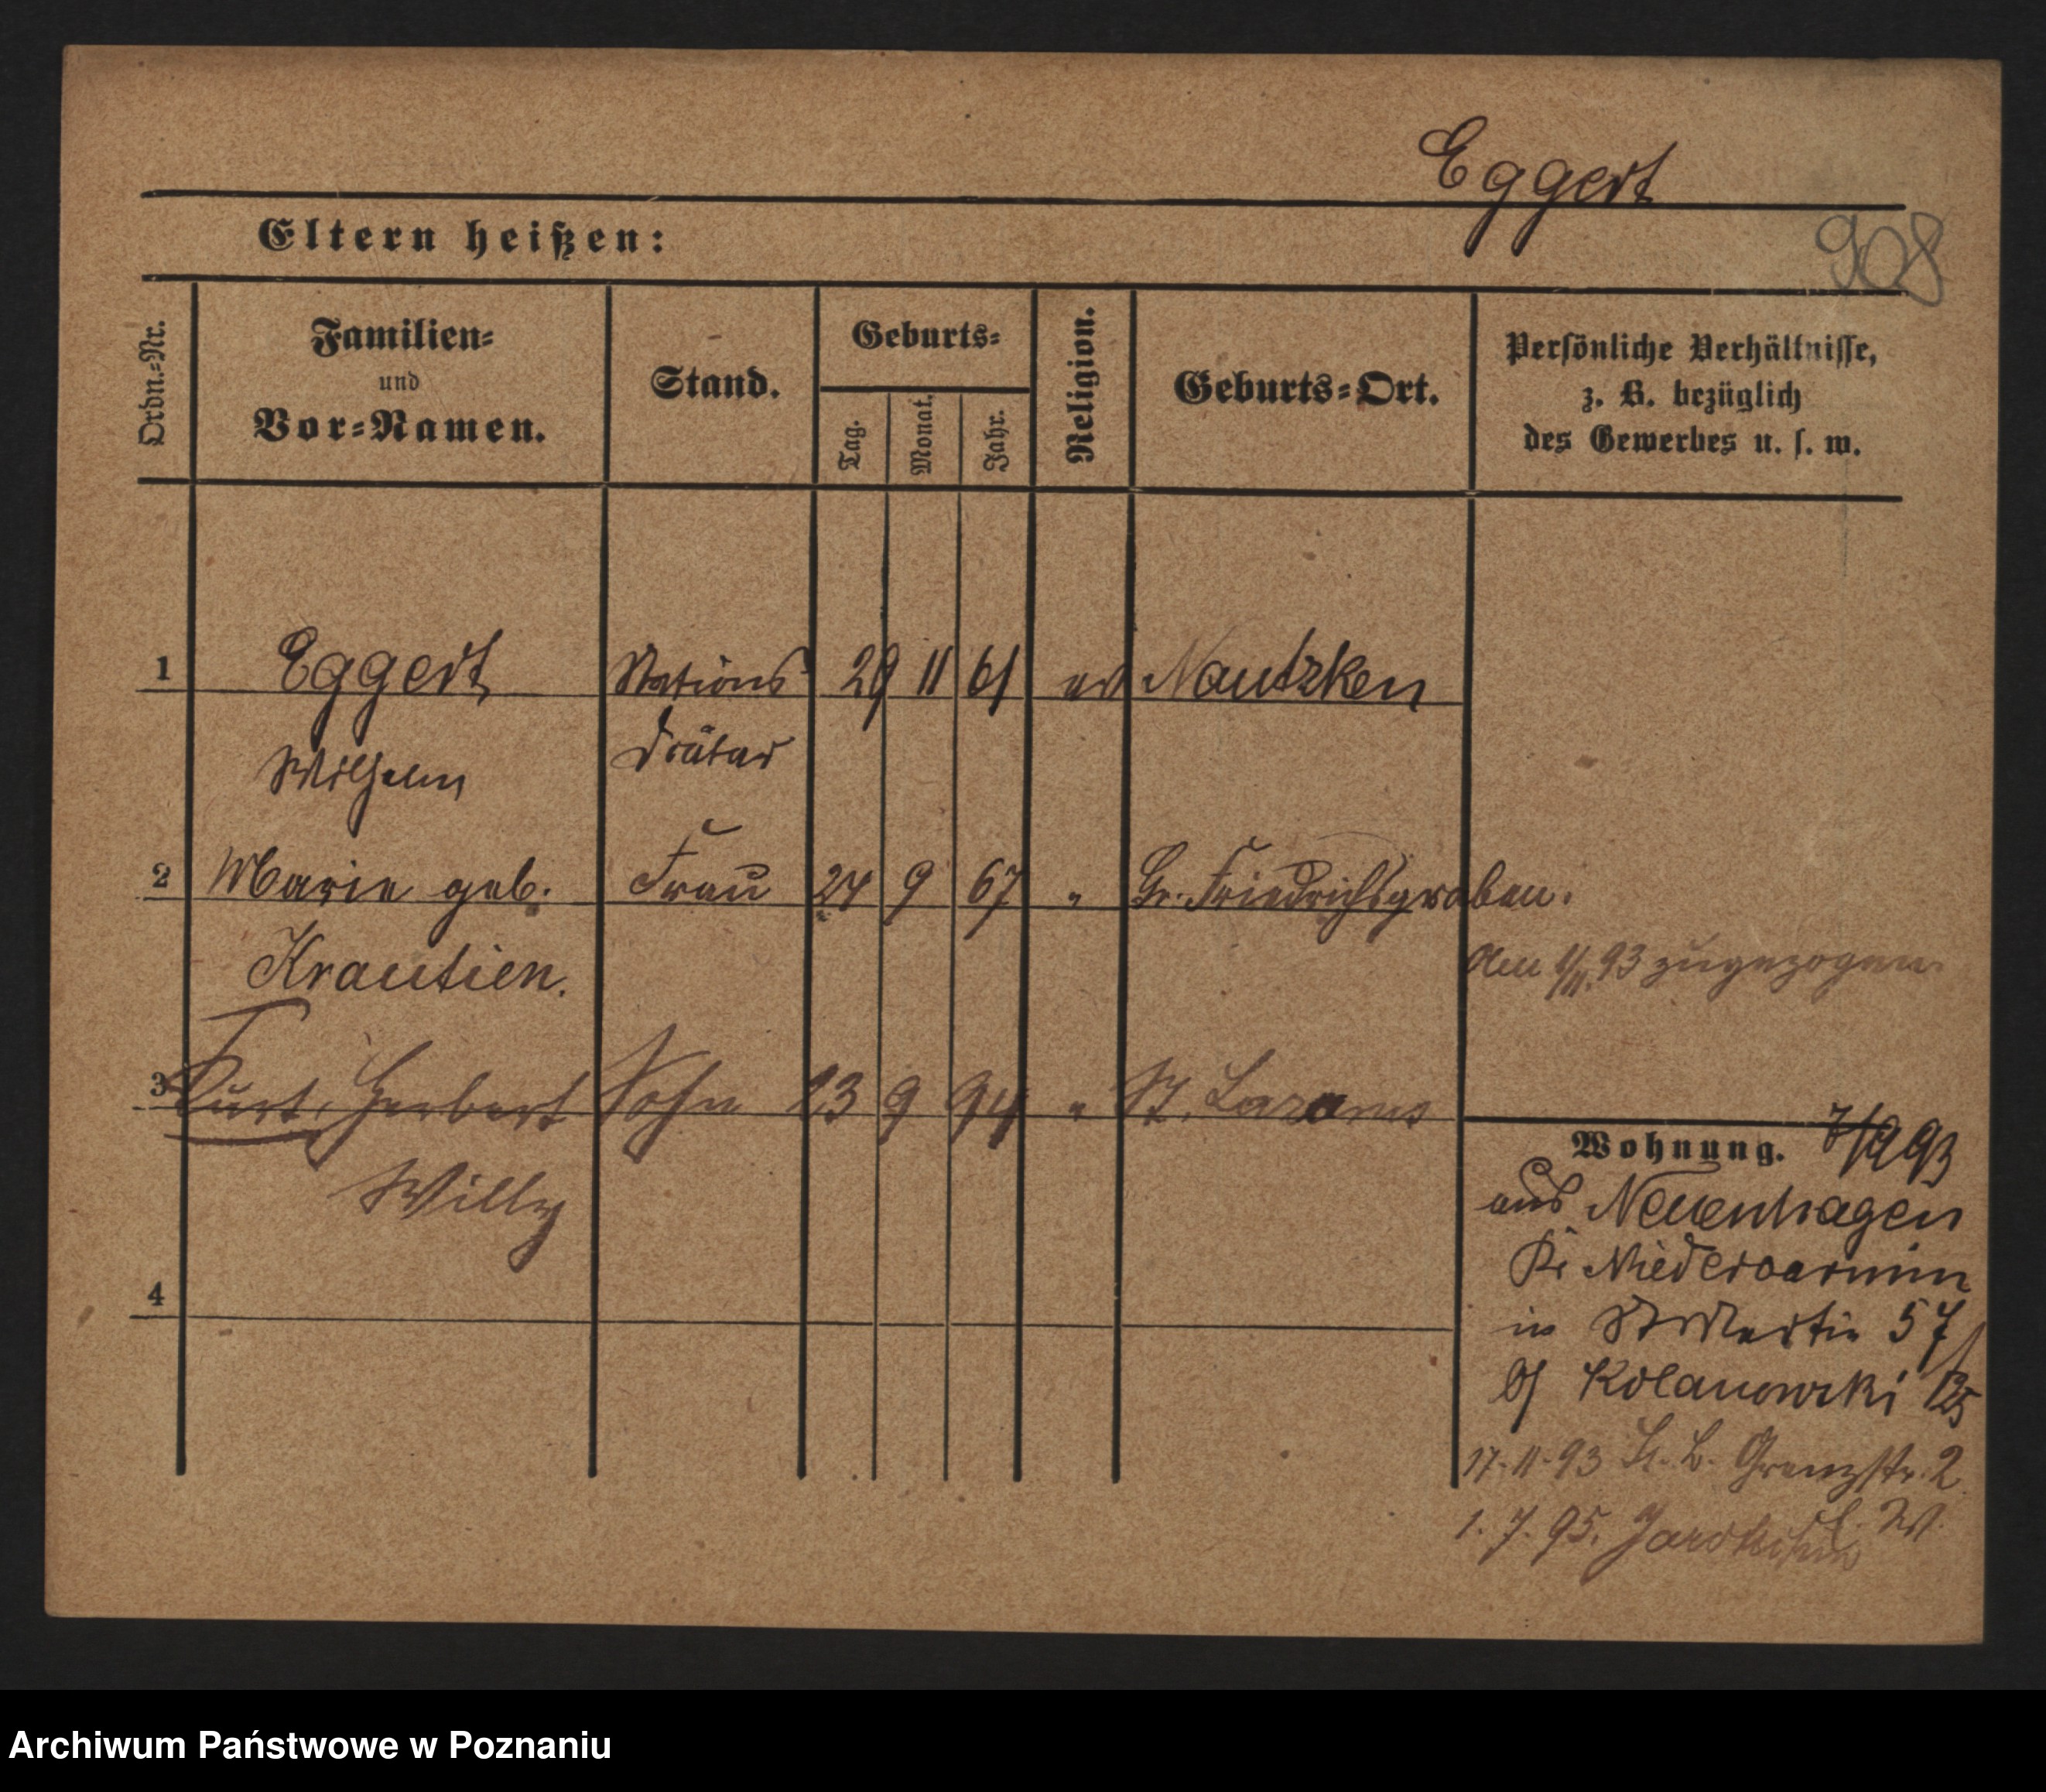 Eggert
Eltern heißen:
908
Ordn.=Nr.
Familien=
und
Vor=Namen.
Stand.
Geburts=
Tag.
Monat.
Jahr.
Religion.
Geburts=Ort.
Persönliche Verhältnisse,
z. B. bezüglich
des Gewerbes u. s. w.
1 Eggert Stations 29 11 61 ev Nautzken
Wilhelm Diätar
2 Marie geb. Frau 24 9 67 " Gr. Friedrichsgraben.
Krautien.
Am 1/11. 93 zugezogen.
3 Kurt, Herbert Sohn 13 9 94 " St. Lazarus
Willy
4
Wohnung. 7/9 93
aus Neuenhagen
Kr Niederbarnim
in St Martin 57
b/ Kolanowski
17.11.93 St. L. Grenzstr. 2
1. 7. 95.
Archiwum Państwowe w Poznaniu